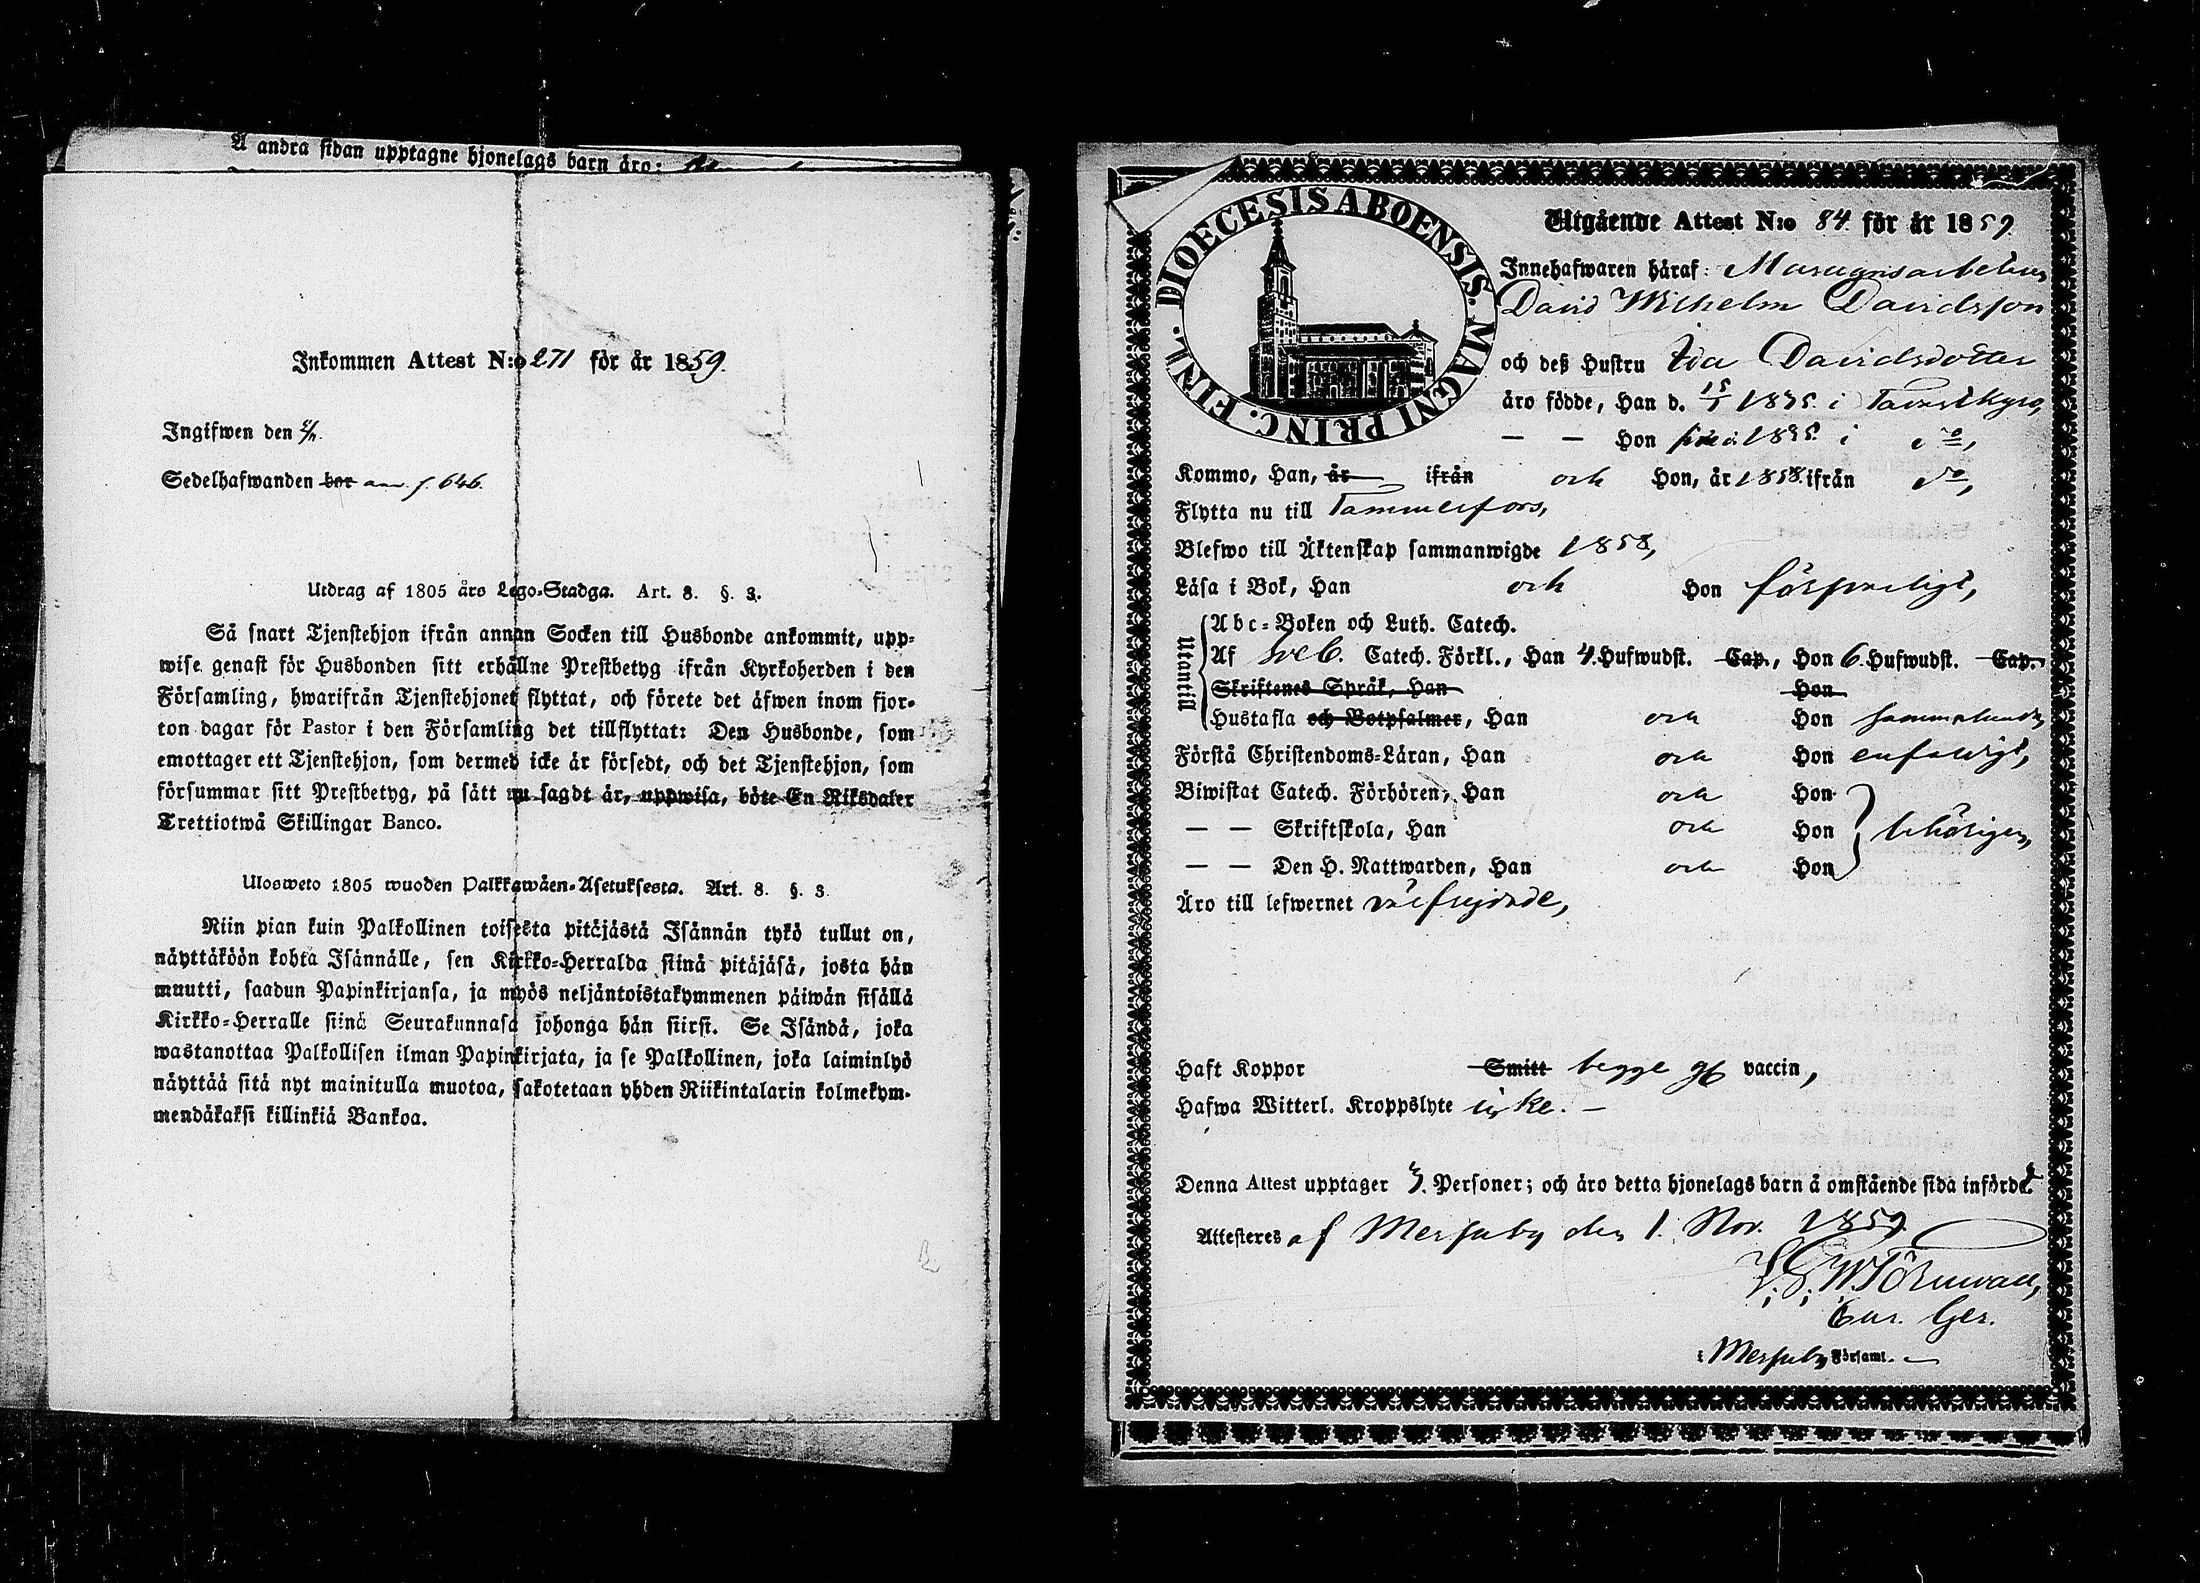 Å andra sidan upptagne hjonelags barn äro:
Inkommen Attest N:o 271 för år 1859.
Ingifwen den
Sedelhafwanden bor f. 646.
Utdrag af 1805 års Lego-Stadga. Art. 8. §. 3.
Så snart Tjenstehjon ifrån annan Socken till Husbonde ankommit, upp-
wise genast för Husbonden sitt erhållne Prestbetyg ifrån Kyrkoherden i den
Församling, hwarifrån Tjenstehjonet flyttat, och förete det äfwen inom fjor-
ton dagar för Pastor i den Församling det tillflyttat: Den Husbonde, som
emottager ett Tjenstehjon, som dermed icke är försedt, och det Tjenstehjon, som
försummar sitt Prestbetyg, på sätt nu sagdt är, uppwisa, böte En Riksdaler
Trettiotwå Skillingar Banco.
Ulosweto 1805 wuoden Palkkawäen-Asetuksesta. Art. 8. §. 3
Niin pian kuin Palkollinen toisesta pitäjästä Isännän tykö tullut on,
näyttäköön kohta Isännälle, sen Kirkko-Herralda siinä pitäjäsä, josta hän
muutti, saadun Papinkirjansa, ja myös neljäntoistakymmenen päiwän sisällä
Kirkko-Herralle siinä Seurakunnasa johonga hän siirsi. Se Isändä, joka
wastanottaa Palkollisen ilman Papinkirjata, ja se Palkollinen, joka laiminlyö
näyttää sitä nyt mainitulla muotoa, sakotetaan yhden Riikintalarin kolmekym-
mendäkaksi killinkiä Bankoa.
DIOECESIS ABOENSIS. MAGNI PRINC. FINL.
Utgående Attest N:o 84 för år 1859.
Innehafwaren häraf: Masugnsarbetaren
David Wilhelm Davidsson
och deß Hustru Ida Davidsdotter
äro födde, Han d. 15/5 1835 i Tavastkyro,
— — Hon 1835 i do,
Kommo, Han, år ifrån och Hon, år 1858 ifrån do,
Flytta nu till Tammerfors,
Blefwo till Äktenskap sammanwigde 1858,
Läsa i Bok, Han och Hon försvarligt,
Utantill
Abc-Boken och Luth. Catech.
Af Sveb. Catech. Förkl., Han 4. Hufwudst. Cap., Hon 6. Hufwudst. Cap.
Skriftenes Språk, Han Hon
Hustafla och Botpsalmer, Han och Hon sammaledes,
Förstå Christendoms-Läran, Han och Hon enfaldigt,
Biwistat Catech. Förhören, Han och Hon
— — Skriftskola, Han och Hon behörigen,
— — Den H. Nattwarden, Han och Hon
Äro till lefwernet välfrejdade,
Haft Koppor Smitt begge gb vaccin,
Hafwa Witterl. Kroppslyte icke. —
Denna Attest upptager 3. Personer; och äro detta hjonelags barn å omstående sida införde
Attesteres af Messuby den 1. Nov. 1859.
Törnwall,
Cur. Ger.
i Messuby Församl. —